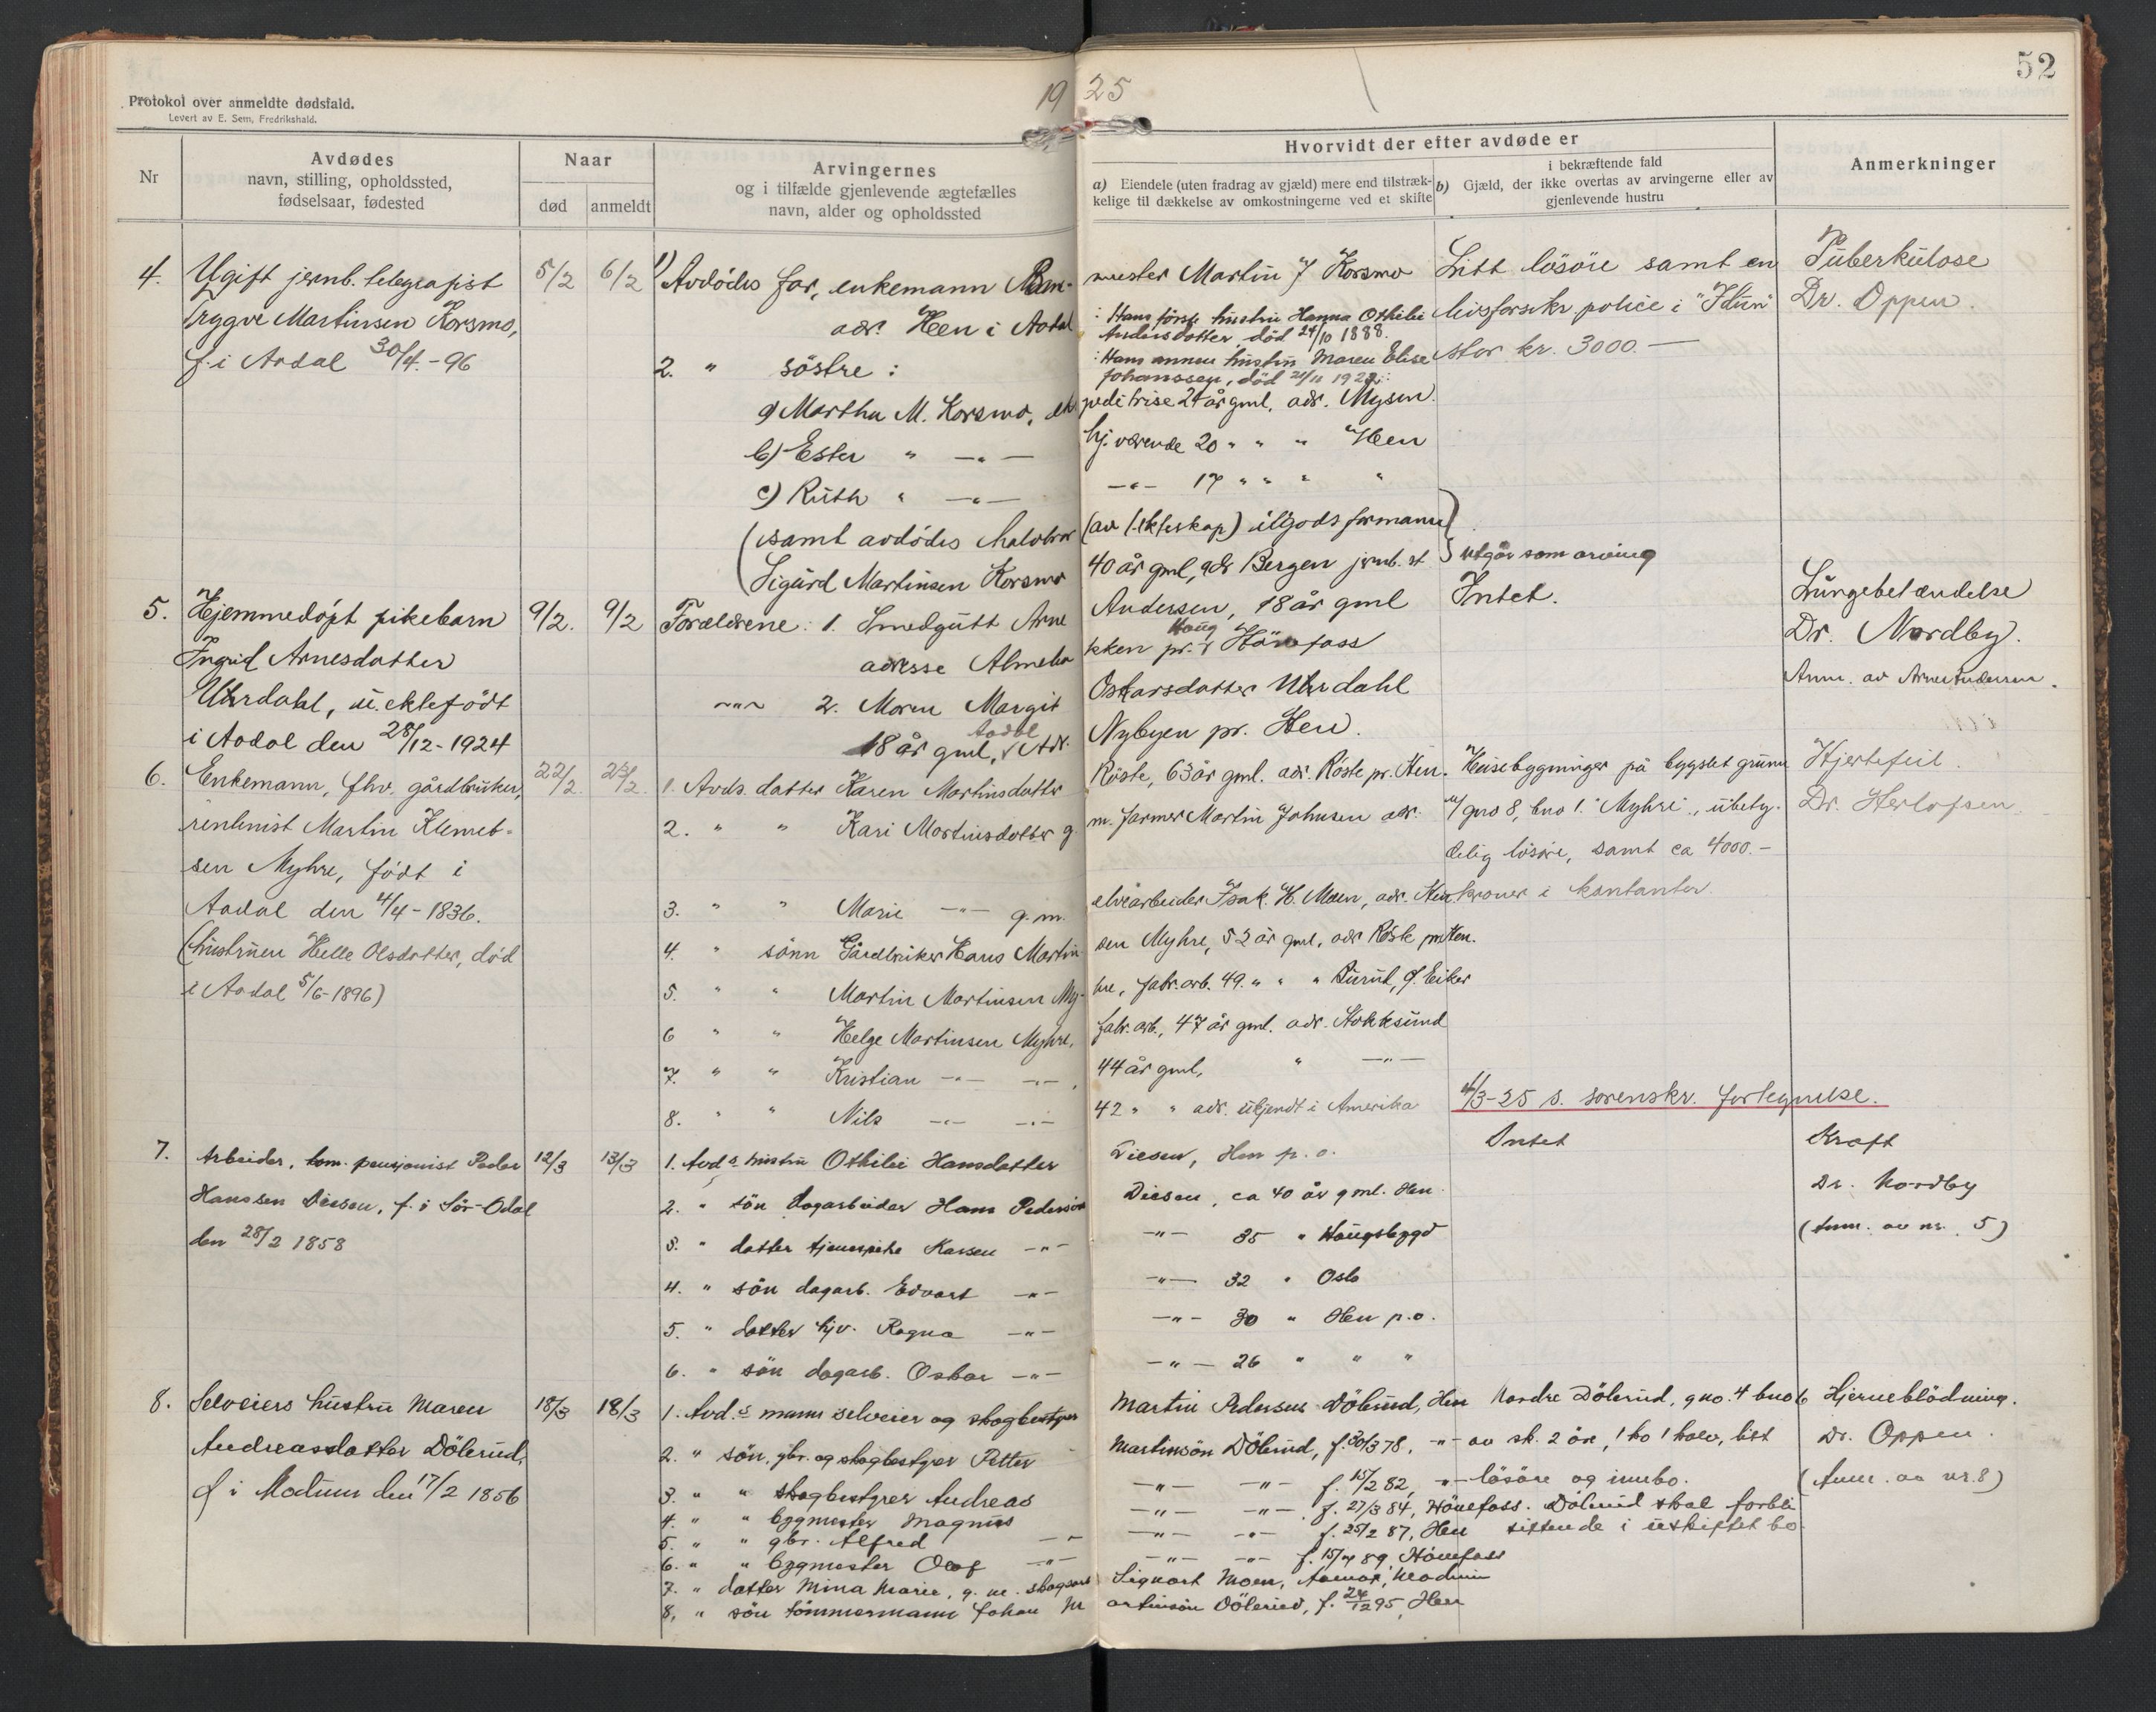 52
1925
Protokol over anmeldte dødsfald.
Levert av E. Sem, Fredrikshald.
Nr
Avdødes
navn, stilling, opholdssted,
fødselsaar, fødested
Naar
død
anmeldt
Arvingernes
og i tilfælde gjenlevende ægtefælles
navn, alder og opholdssted
Hvorvidt der efter avdøde er
a) Eiendele (uten fradrag av gjæld) mere end tilstræk-
kelige til dækkelse av omkostningerne ved et skifte
i bekræftende fald
b) Gjæld, der ikke overtas av arvingerne eller av
gjenlevende hustru
Anmerkninger
4.
Ugift jernb. telegrafist
Trygve Martinsen Korsmo,
f. i Aadal 30/4.-96
5/2
6/2
1) Avdödes far, enkemann Ban-
mester Martin J Korsmo
adr. Hen i Aadal
: Hans förste hustru Hanna Othilie
Andersdatter, död 24/10 1888.
: Hans annen hustru Maren Elise
Johanssen, död 21/11 1923:
2. " söstre :
a) Martha M. Korsmo, ekspeditrise 24 år gml, adr. Mysen.
b) Ester " —"— hj. værende 20 " " " Hen
c) Ruth " —"— —"— 17 " " " "
(samt avdödes halvbror (av 1. ekteskap) ilgodsformann
Sigurd Martinsen Korsmo 40 år gml, adr Bergen jernb. st } utgår som arving
Litt lösöre samt en
livsforsikr. police i "Idun"
stor kr. 3000.—
Tuberkulose
Dr. Oppen.
5.
Hjemmedöpt pikebarn
Ingrid Arnesdatter
Uhrdahl, u. ektefödt
i Aadal den 28/12-1924
9/2.
9/2
Foreldrene: 1. Smedgutt Arne Andersen, 18 år gml
adresse Almebakken pr. Haug Hönefoss
—"— 2. Moren Margit Oskarsdatter Uhrdahl
18 år gml, Adr. Aadal Nybyen pr. Hen.
Intet.
Lungebetændelse
Dr. Nordby.
Anm. av Arne Andersen.
6.
Enkemann, fhv. gårdbruker,
rentenist Martin Klemet-
sen Myhre, födt i
Aadal den 4/4-1836.
(hustruen Helle Olsdatter, död
i Aadal 5/6-1896)
22/2
23/2.
1. Avds. datter Karen Martinsdatter Röste, 63 år gml. adr. Röste pr. Hen.
2. " " Kari Martinsdatter g. m. farmer Martin Johnsen adr.
3. " " Marie —"— g. m. elvearbeider Isak H. Moen, adr. Hen
4. " sönn Gårdbruker Hans Martinsen Myhre, 52 år gml, adr Röste pr Hen.
5. " " Martin Martinsen Myhre, fabr. arb. 49 " " " Durud, Ø. Eiker
6 " " Helge Martinsen Myhre, fabr. arb., 47 år gml. adr. Hokksund
7. " " Kristian —"— —"—, 44 år gml, " —"—
8. " " Nils —"— —"— 42 " " adr. ukjendt i Amerika
Husebygninger på bygslet grunn
u/ gno 8, bno 1. "Myhre", ubety-
delig lösöre, samt ca 4000.-
kroner i kontanter.
4/3-25 s. sorenskr. fortegnelse.
Hjertefeil.
Dr. Herlofsen
7.
Arbeider, kom. pensjonist Peder
Hanssen Diesen, f. i Sör-Odal
den 28/2 1858
12/3
13/3
1. Avd.s hustru Othilie Hansdatter Diesen, Hen p. o.
2. " sön dagarbeider Hans Pedersön Diesen, ca 40 år gml. Hen
3. " datter tjenespike Karen —"— —"— 35 " Haugsbygd
4. " sön dagarb. Edvart —"— —"— 32 " Oslo
5. " datter hjv. Ragna —"— —"— 30 " Hen p.o.
6. " sön dagarb. Oskar —"— —"— 26 " " "
Intet
Kraft
Dr. Nordby
(Anm. av nr. 5)
8.
Selveiers hustru Maren
Andreasdatter Dölerud,
f i Modum den 17/2 1856
18/3
18/3
1. Avd.s mann selveier og skogbestyrer Martin Pedersen Dölerud, Hen
2. " sön, gbr. og skogbestyrer Petter Martinsön Dölerud, f. 30/3 78, —"—
3. " " skogbestyrer Andreas —"— —"— f. 15/2 82, —"—
4. " " bygmester Magnus —"— —"— f. 27/3 84, Hönefoss.
5. " " gbr. Alfred —"— —"— f. 25/2 87, Hen
6. " " bygmester Olaf —"— —"— f. 15/4 89, Hönefoss
7. " datter Mina Marie, g. m. skogsarb Sigvart Moen, Aamot, Modum
8. " sön tömmermann Johan Martinsön Dölerud, f. 24/12 95, Hen
Nordre Dölerud, gno. 4 bno 6
av sk. 2 öre, 1 ko 1 kalv, litt
lösöre og innbo.
Dölerud skal forbli
sittende i uskiftet bo.
Hjerneblödning.
Dr. Oppen.
(Anm. av nr. 8)